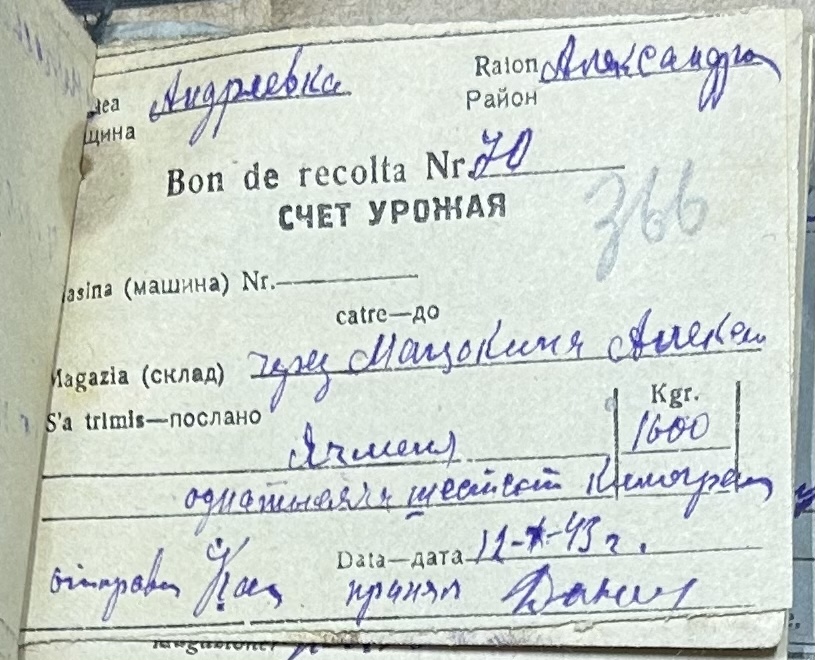 Андреевка Raion Александро
щина Район
Bon de recolta Nr. 70
СЧЕТ УРОЖАЯ 366
asina (машина) Nr.
catre—до
Magazia (склад) через
S'a trimis—послано Kgr.
Ячменя 1600
одна тысяча шестьсот Килограм
Data—дата 12-X-43 г.
отправил принял